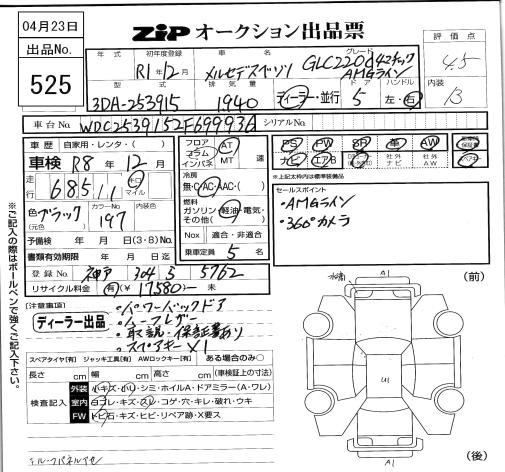 04月23日
ZiP オークション出品票
出品No.
525
評価点
4.5
内装
B
年式 初年度登録 車名 グレード
R1年12月 メルセデスベンツ GLC220d 4マチック
AMGライン
型式 排気量 ドア ハンドル
3DA-253915 1940 ディーラー・並行 5 左・右
車台No. WDC2539152F69993A シリアルNo.
車歴 自家用・レンタ・( )
車検 R8年12月
走行 68511 km マイル
色 ブラック (元色) カラーNo. 197 内装色
予備検 年 月 日(3・8)No.
書類有効期限 年 月 日迄
登録No. 神戸 304 5762
リサイクル料金 有(¥17580-) 未
フロア コラム インパネ AT MT 速
冷房 無・AC・AAC・( )
燃料 ガソリン・軽油・電気・その他( )
Nox 適合・非適合
乗車定員 5 名
PS PW SR 革 AW
ナビ エアB 社外ナビ 社外AW
保証書
スペアキー
※上記太枠内は標準装備品
セールスポイント
・AMGライン
・360°カメラ
※ご記入の際はボールペンで強くご記入下さい。
[注意事項]
ディーラー出品
・パワーバックドア
・ムーフレザー
・取説・保証書あり
・スペアキー×1
スペアタイヤ[有] ジャッキ工具[有] AWロックキー[有] ある場合のみ○
長さ cm 幅 cm 高さ cm (車検証上の寸法)
検査記入
外装 小キズ・小凹・シミ・ホイルA・ドアミラー(A・ワレ)
室内 白ヨレ・キズ・スレ・コゲ・穴・キレ・破れ・ウキ
FW トビ石・キズ・ヒビ・リペア跡・X要ス
A1
(前)
U1
A1
(後)